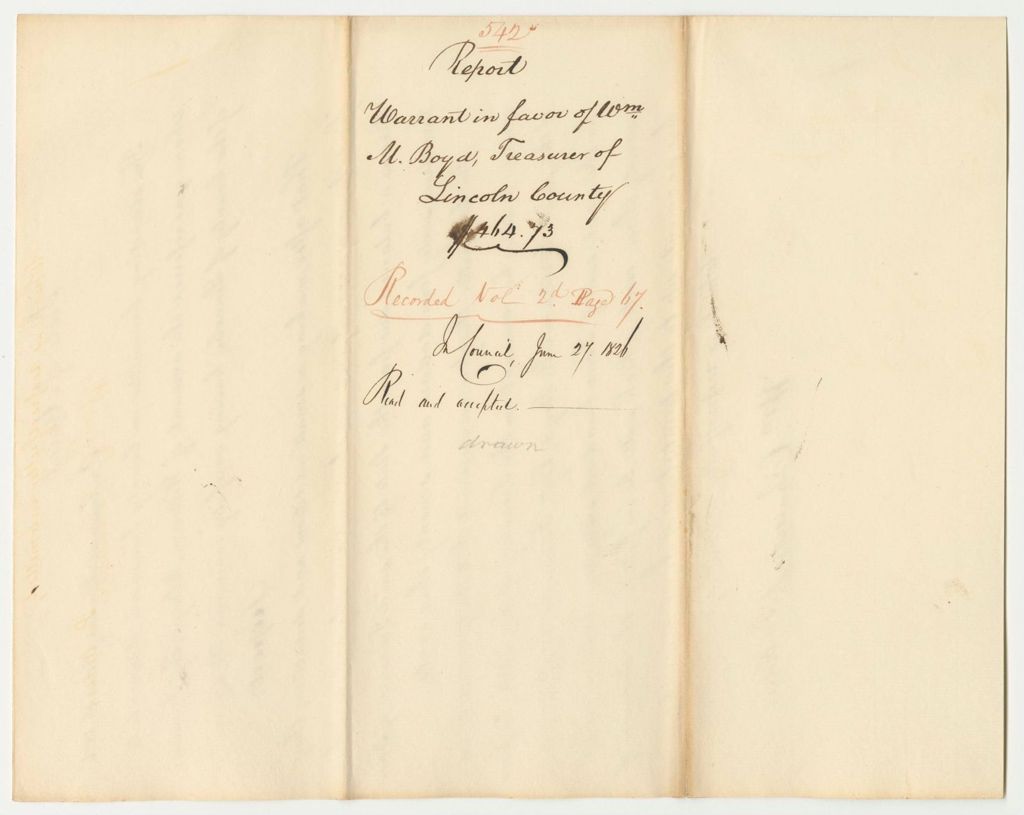 542
Report
Warrant in favor of Wm
M. Boyd, Treasurer of
Lincoln County
$464.73
Recorded Vol 2d Page 67.
In Council, June 27. 1826
Read and accepted.
drawn